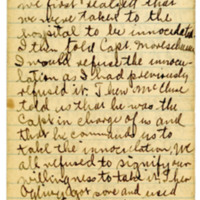 we first realized that
we were taken to the
hospital to be innoculated
I then told Capt.
I would refuse the innocu-
lation as I had previously
refused it. Then McClure
told us that he was the
Capt in charge of us and
that he commands us to
take the innoculation. We
all refused to signify our
willingness to take it. Then
got sore and used